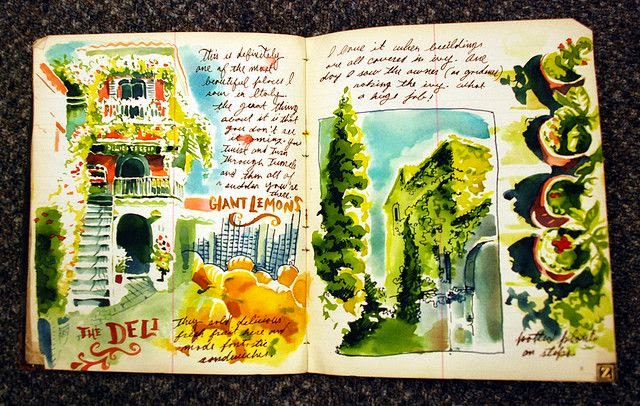 This is definitely
one of the most
beautiful places I
saw in Italy.
the great thing
about it is that
you don't see
it coming. You
twist and turn
through tunnels
and then all of
a sudden you're
there.
GIANT LEMONS
THE DELI
They sold delicious
fresh fruit here and
made fantastic
sandwiches.
I love it when buildings
are all covered in ivy. One
day I saw the owner (or gardener)
raking the ivy. What
a big job!
potted plants
on steps.
Z